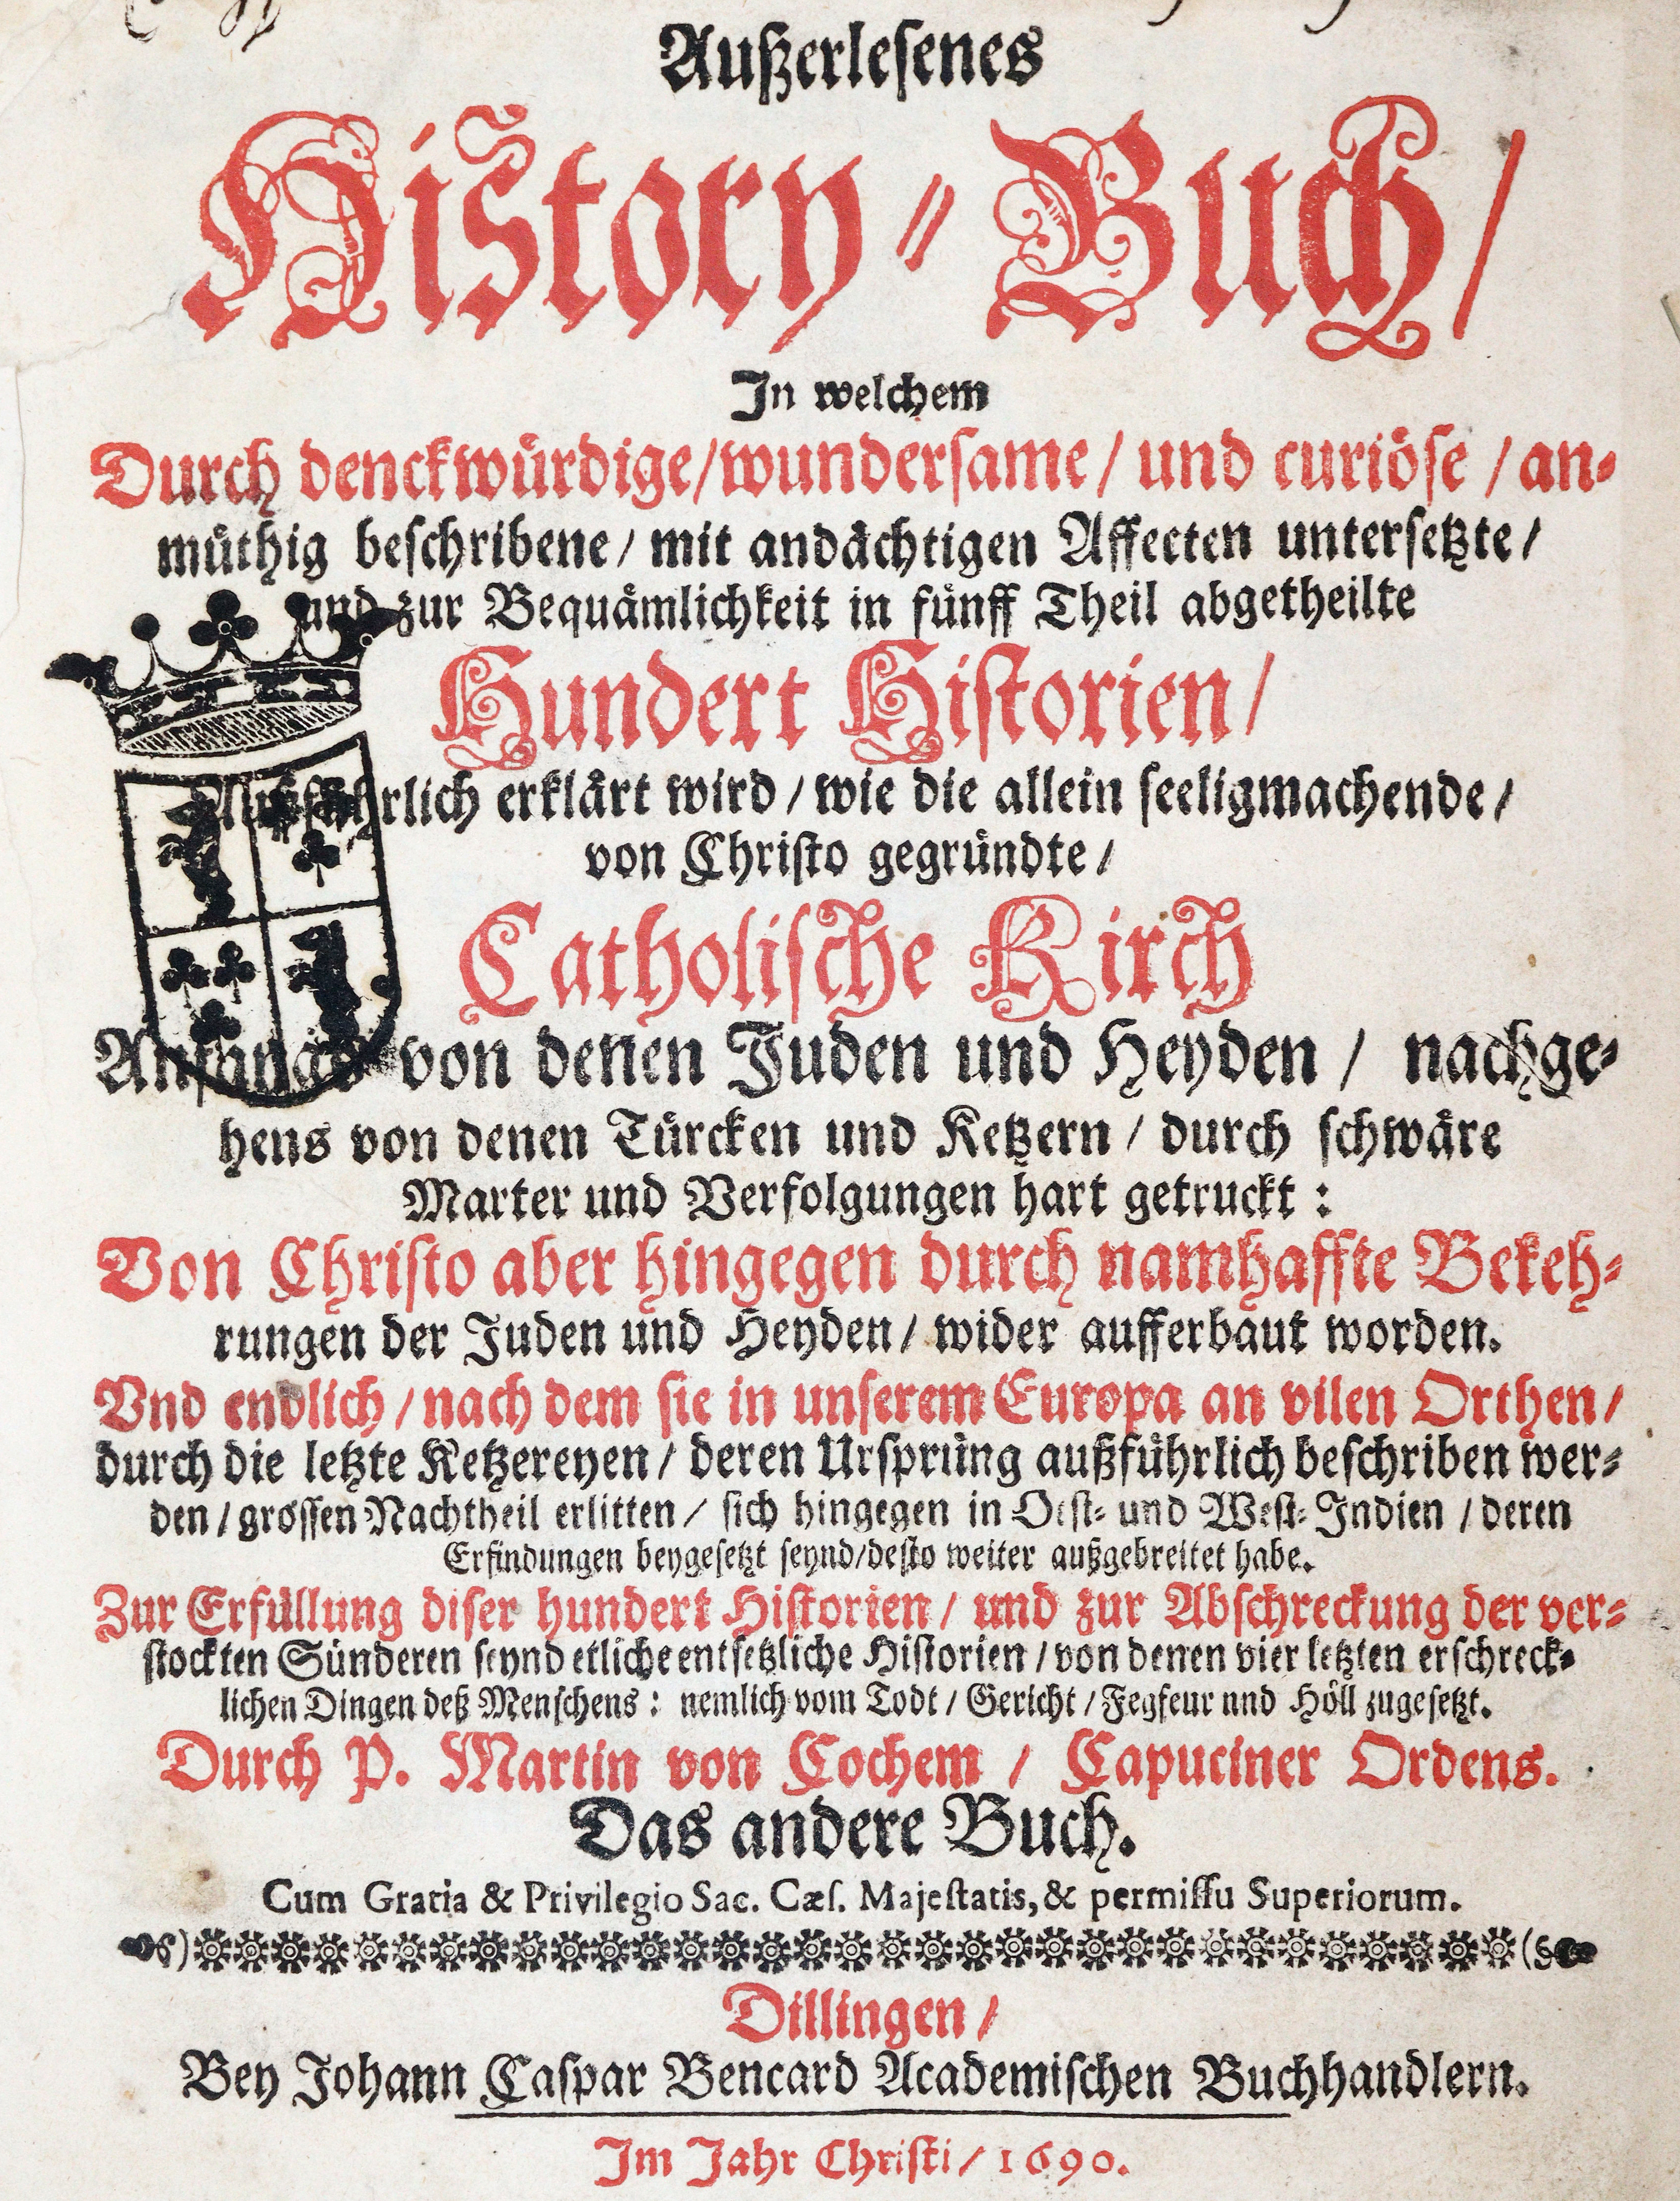 Außerlesenes
History-Buch/
In welchem
Durch denckwürdige/wundersame/ und curiöse / an-
müthig beschribene/ mit andächtigen Affecten untersetzte/
und zur Bequämlichkeit in fünff Theil abgetheilte
Hundert Historien/
Außführlich erklärt wird / wie die allein seeligmachende/
von Christo gegründte/
Catholische Kirch
Anfangs von denen Juden und Heyden / nachge-
hens von denen Türcken und Ketzern / durch schwäre
Marter und Verfolgungen hart getruckt :
Von Christo aber hingegen durch namhaffte Bekeh-
rungen der Juden und Heyden / wider aufferbaut worden.
Vnd endlich / nach dem sie in unserem Europa an vilen Orthen/
durch die letzte Ketzereyen / deren Ursprung außführlich beschriben wer-
den / grossen Nachtheil erlitten / sich hingegen in Oest- und West-Indien / deren
Erfindungen beygesetzt seynd/desto weiter außgebreitet habe.
Zur Erfüllung diser hundert Historien / und zur Abschreckung der ver-
stockten Sünderen seynd etliche entsetzliche Historien / von denen vier letzten erschreck-
lichen Dingen deß Menschens : nemlich vom Todt / Gericht / Fegfeur und Höll zugesetzt.
Durch P. Martin von Cochem / Capuciner Ordens.
Das andere Buch.
Cum Gratia & Privilegio Sac. Cæs. Majestatis, & permissu Superiorum.
Dillingen /
Bey Johann Caspar Bencard Academischen Buchhandlern.
Im Jahr Christi / 1690.